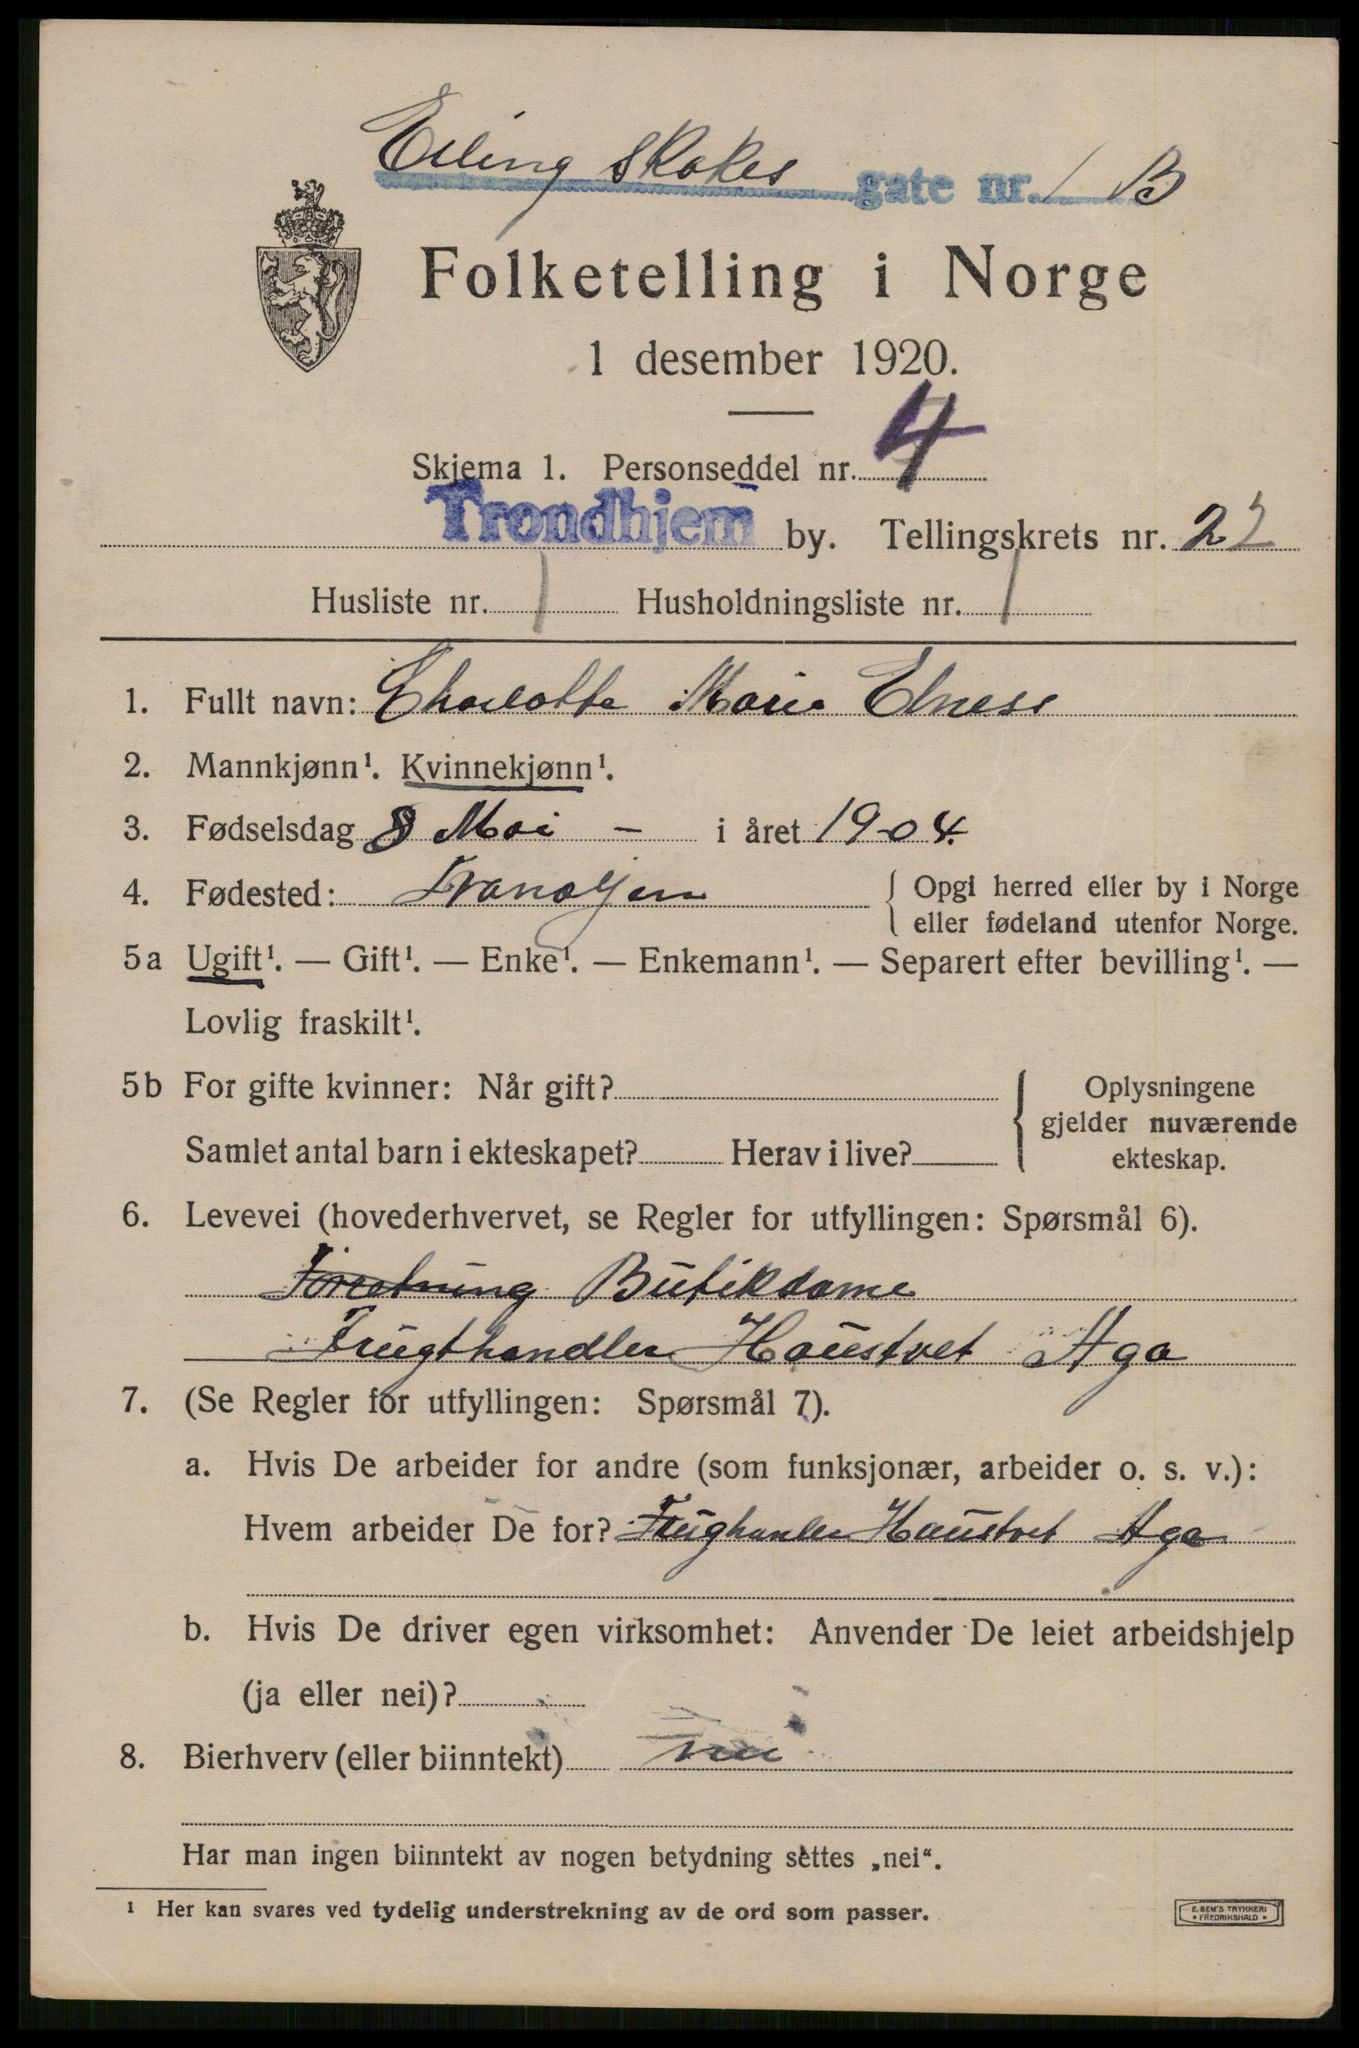 Erling Skakes gate nr. 1 B
Folketelling i Norge
1 desember 1920.
Skjema 1. Personseddel nr. 4
Trondhjem by. Tellingskrets nr. 22
Husliste nr. 1 Husholdningsliste nr. 1
1. Fullt navn: Charlotte Marie Elness
2. Mannkjønn¹. Kvinnekjønn¹.
3. Fødselsdag 8 Mai – i året 1904.
4. Fødested: { Opgi herred eller by i Norge
eller fødeland utenfor Norge.
5a Ugift¹. — Gift¹. — Enke¹. — Enkemann¹. — Separert efter bevilling¹. —
Lovlig fraskilt¹.
5b For gifte kvinner: Når gift? { Oplysningene
gjelder nuværende
Samlet antal barn i ekteskapet? Herav i live? ekteskap.
6. Levevei (hovederhvervet, se Regler for utfyllingen: Spørsmål 6).
Forretning Butikdame
Frugthandler Haustvet Aga
7. (Se Regler for utfyllingen: Spørsmål 7).
a. Hvis De arbeider for andre (som funksjonær, arbeider o. s. v.):
Hvem arbeider De for? Frughanler Haustvet Aga
b. Hvis De driver egen virksomhet: Anvender De leiet arbeidshjelp
(ja eller nei)?
8. Bierhverv (eller biinntekt) nei
Har man ingen biinntekt av nogen betydning settes „nei“.
¹ Her kan svares ved tydelig understrekning av de ord som passer.
E. SEM'S TRYKKERI
* FREDRIKSHALD *